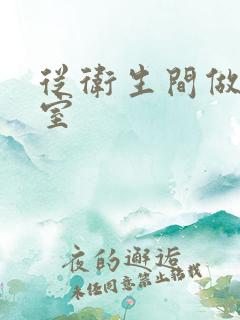 從衛生間做
室
夜的邂逅
未经同意禁止转载